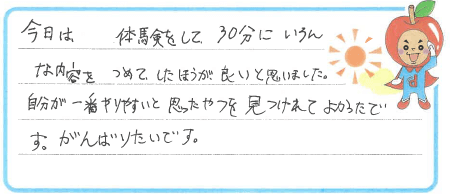 今日は 体験をして、30分に いろん
な内容を つめて、したほうが 良いと思いました。
自分が 一番やりやすいと 思ったやつを 見つけれて よかったで
す。がんばりたいです。